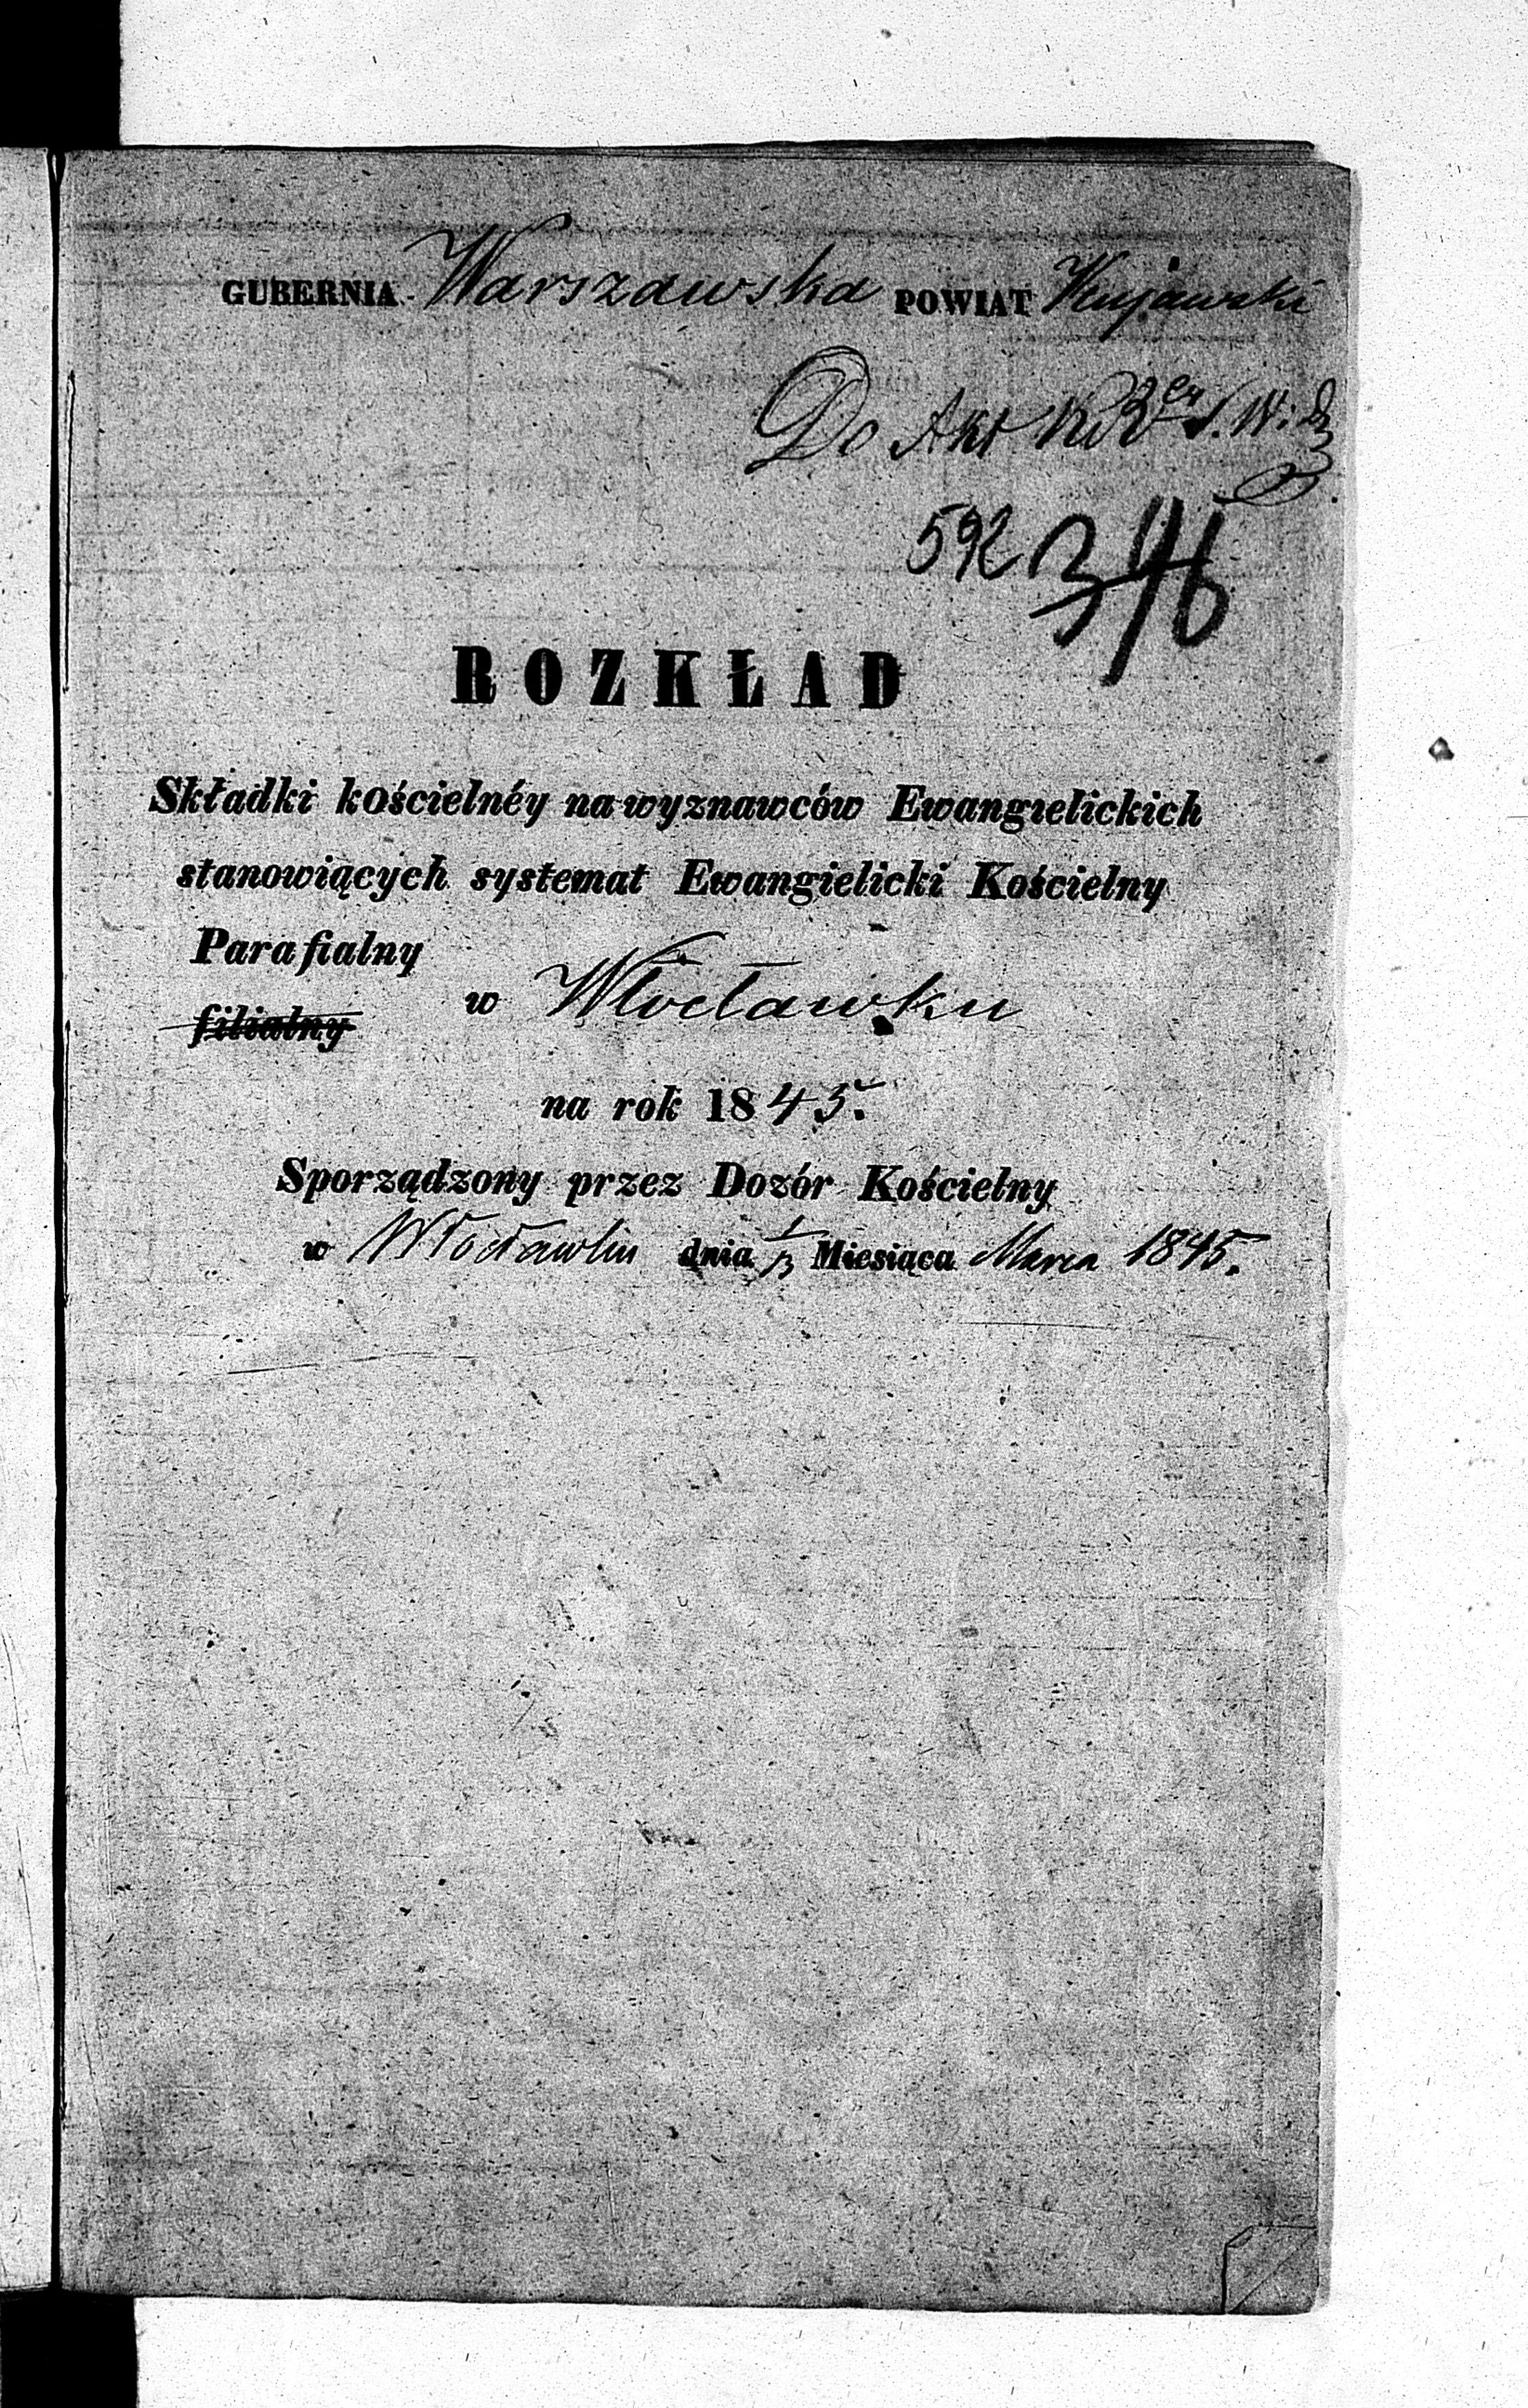 GUBERNIA Warszawska POWIAT Kujawski
Do Akt
592 346
ROZKŁAD
Składki kościelnéy na wyznawców Ewangielickich
stanowiących systemat Ewangielicki Kościelny
Parafialny
filialny
w Włocławku
na rok 1845.
Sporządzony przez Dozór Kościelny
w Włocławku dnia 1/13 Miesiąca Marca 1845.